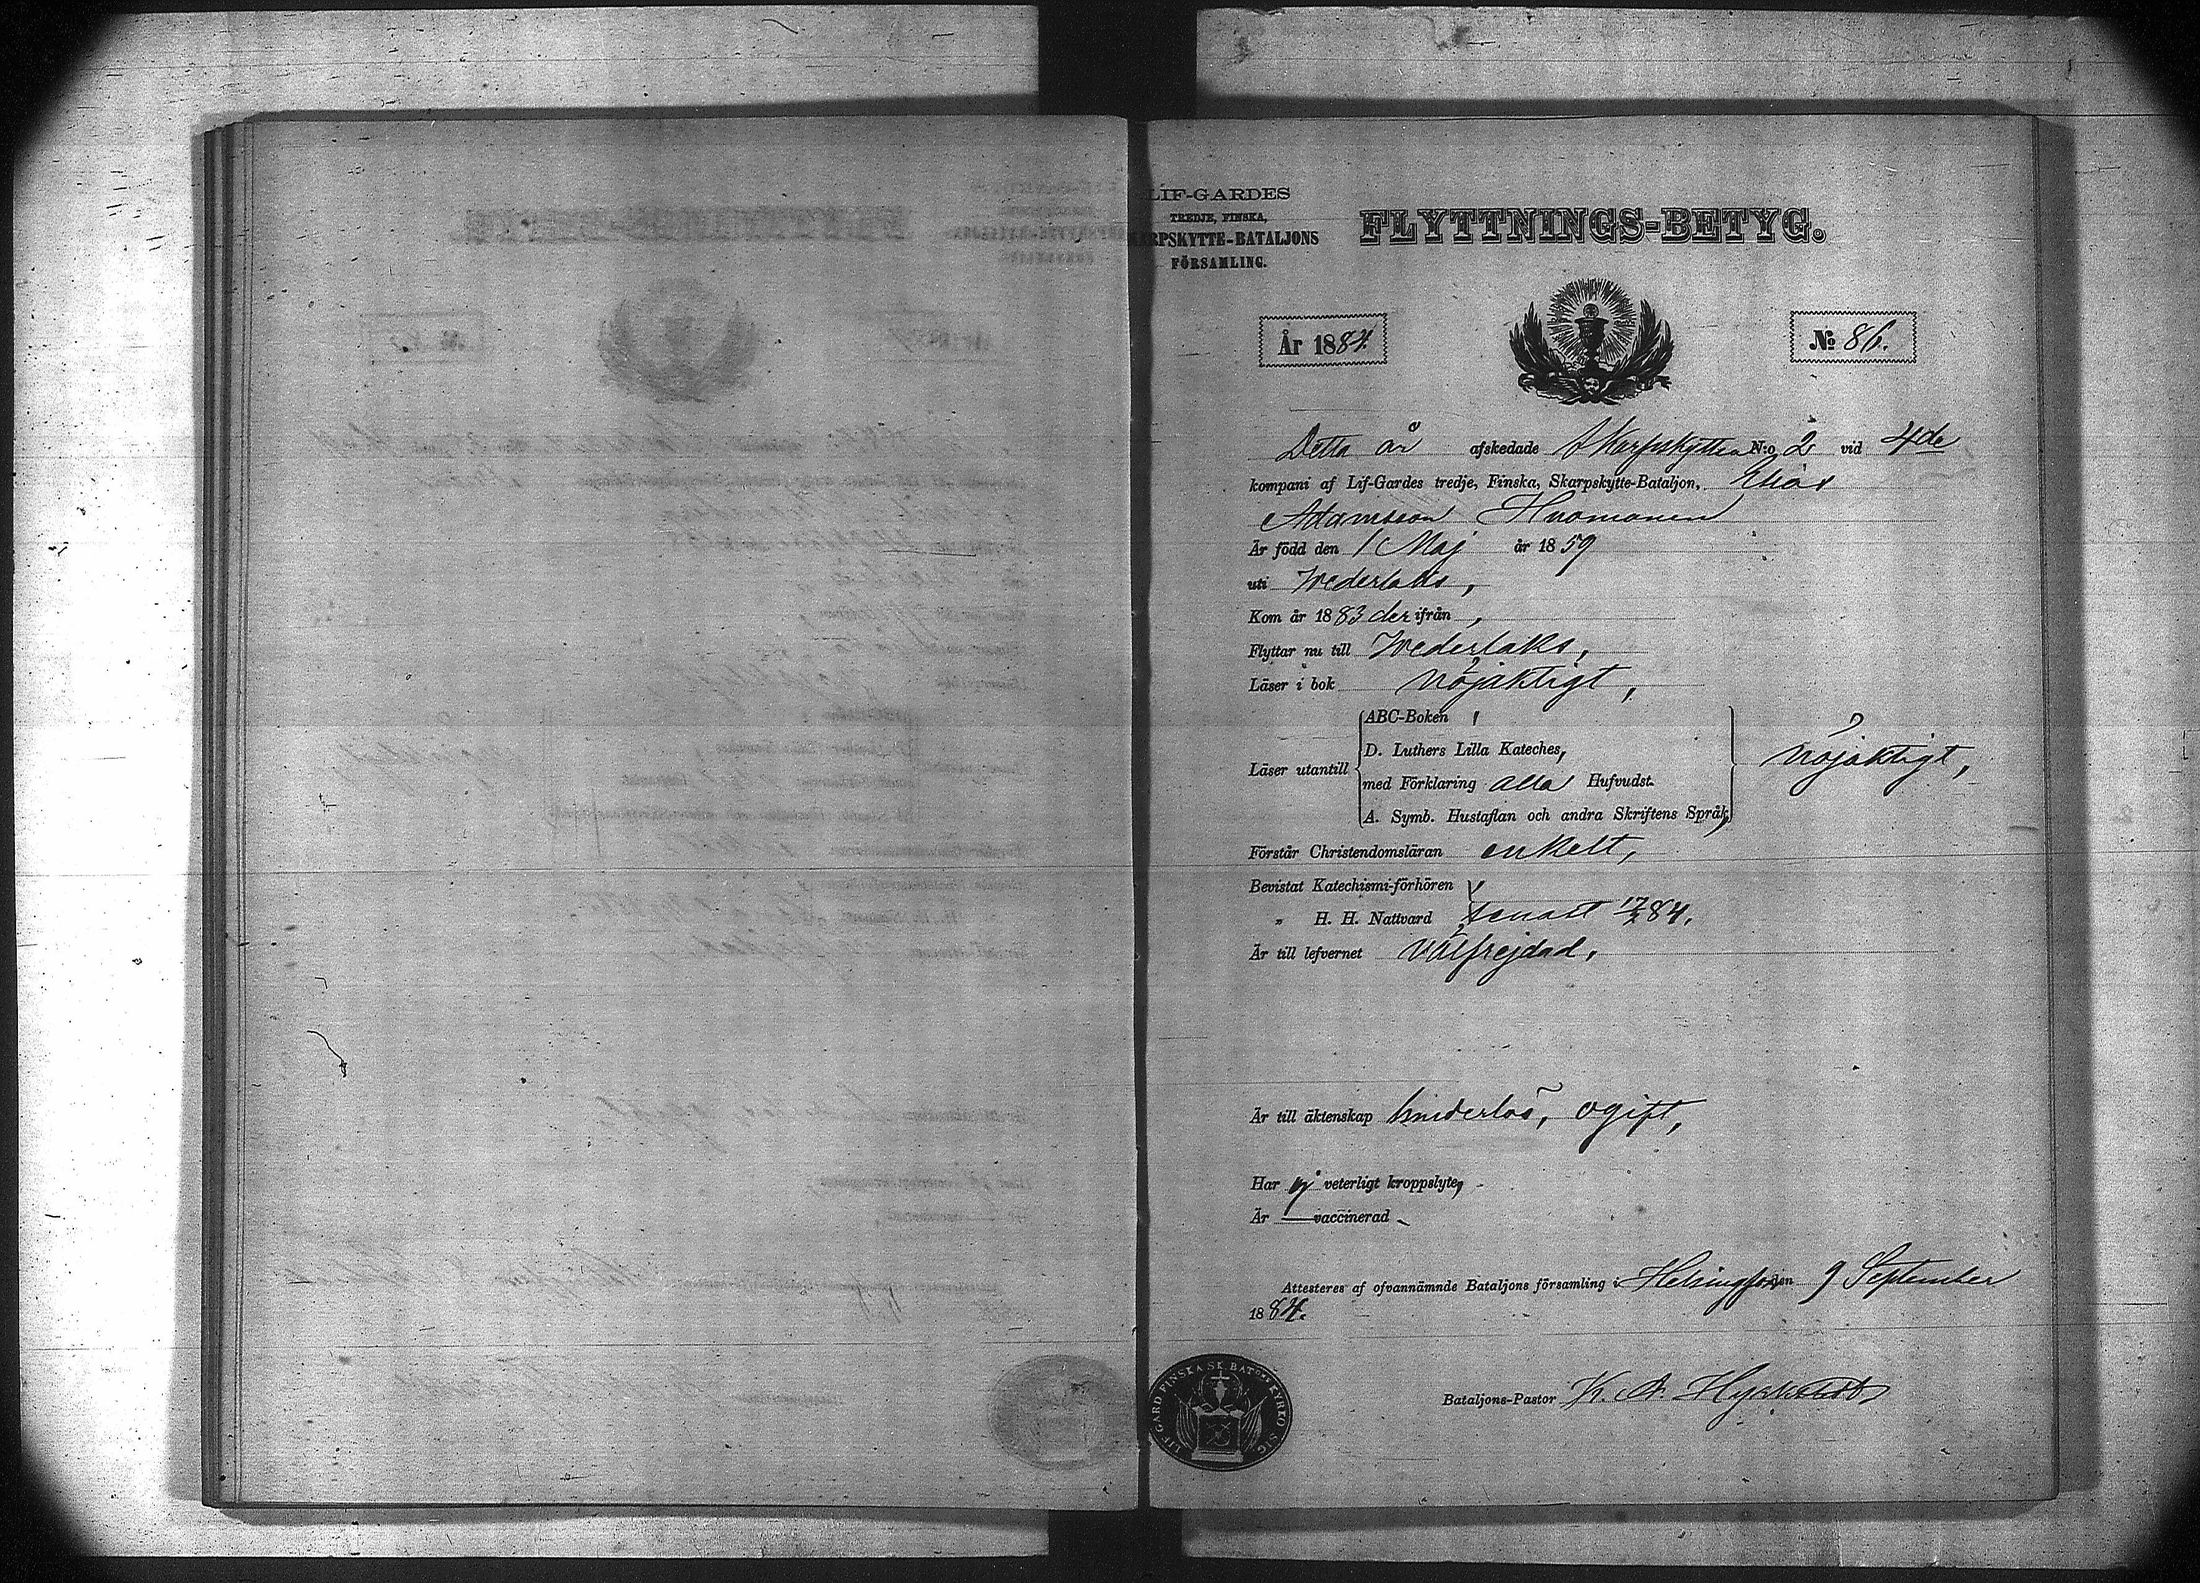 LIF-GARDES
TREDJE, FINSKA,
RPSKYTTE-BATALJONS
FÖRSAMLING.
FLYTTNINGS-BETYG.
År 1884.
№ 86.
Detta år afskedade Skarpskytten N:o 2 vid 4de
kompani af Lif-Gardes tredje, Finska, Skarpskytte-Bataljon, Elias
Adamsson Huomonen
Är född den 1 Maj år 1859
uti Wederlaks,
Kom år 1883 derifrån,
Flyttar nu till Wederlaks,
Läser i bok nöjaktigt,
Läser utantill
ABC-Boken,
D. Luthers Lilla Kateches,
med Förklaring alla Hufvudst.
A. Symb. Hustaflan och andra Skriftens Språk,
nöjaktigt,
Förstår Christendomsläran enkelt,
Bevistat Katechismi-förhören
„ H. H. Nattvard senast 84.
Är till lefvernet välfrejdad.
Är till äktenskap hinderlös, ogift,
Har ej veterligt kroppslyte,
Är — vaccinerad
Attesteres af ofvannämnde Bataljons församling i Helsingfors, den 9 September
1884.
Bataljons-Pastor K. A.
LIF-GARD FINSKA SK. BATONS KYRKO SIG.